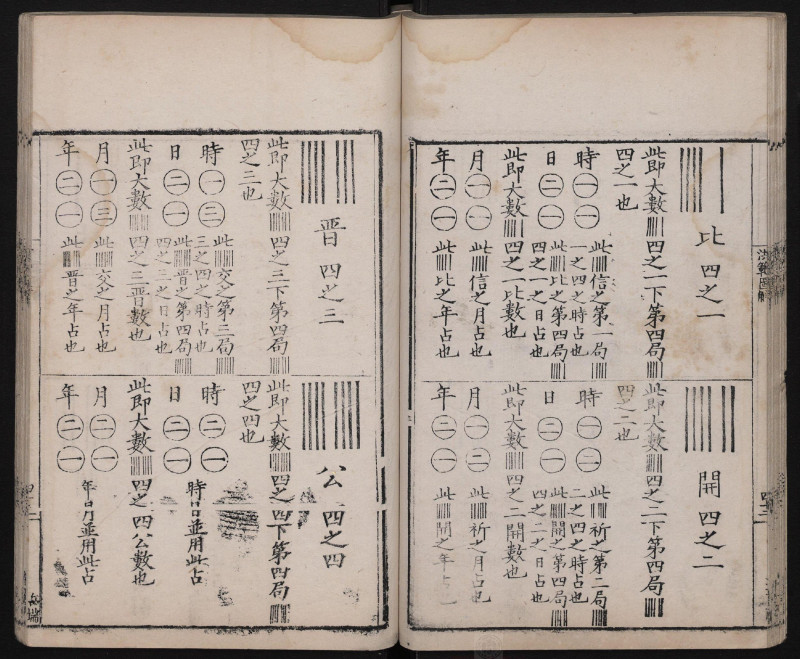 洪範圖解
比 四之一
此即大數四之一下第四局
四之一也
時一一 此信之第一局
一之四之時占也
日二一 此比之第四局
四之一之日占也
此即大數四之一比數也
月一一 此信之月占也
年二一 此比之年占也
開 四之二
此即大數四之二下第四局
四之二也
時一二 此祈之第二局
二之四之時占也
日二一 此開之第四局
四之二之日占也
此即大數四之二開數也
月一二 此祈之月占也
年二一 此開之年占也
晋 四之三
此即大數四之三下第四局
四之三也
時一三 此交之第三局
三之四之時占也
日二一 此晋之第四局
四之三之日占也
此即大數四之三晋數也
月一三 此交之月占也
年二一 此晋之年占也
公 四之四
此即大數四之四下第四局
四之四也
時二一 時日並用此占
日二一
此即大數四之四公數也
月二一 年月並用此占
年二一